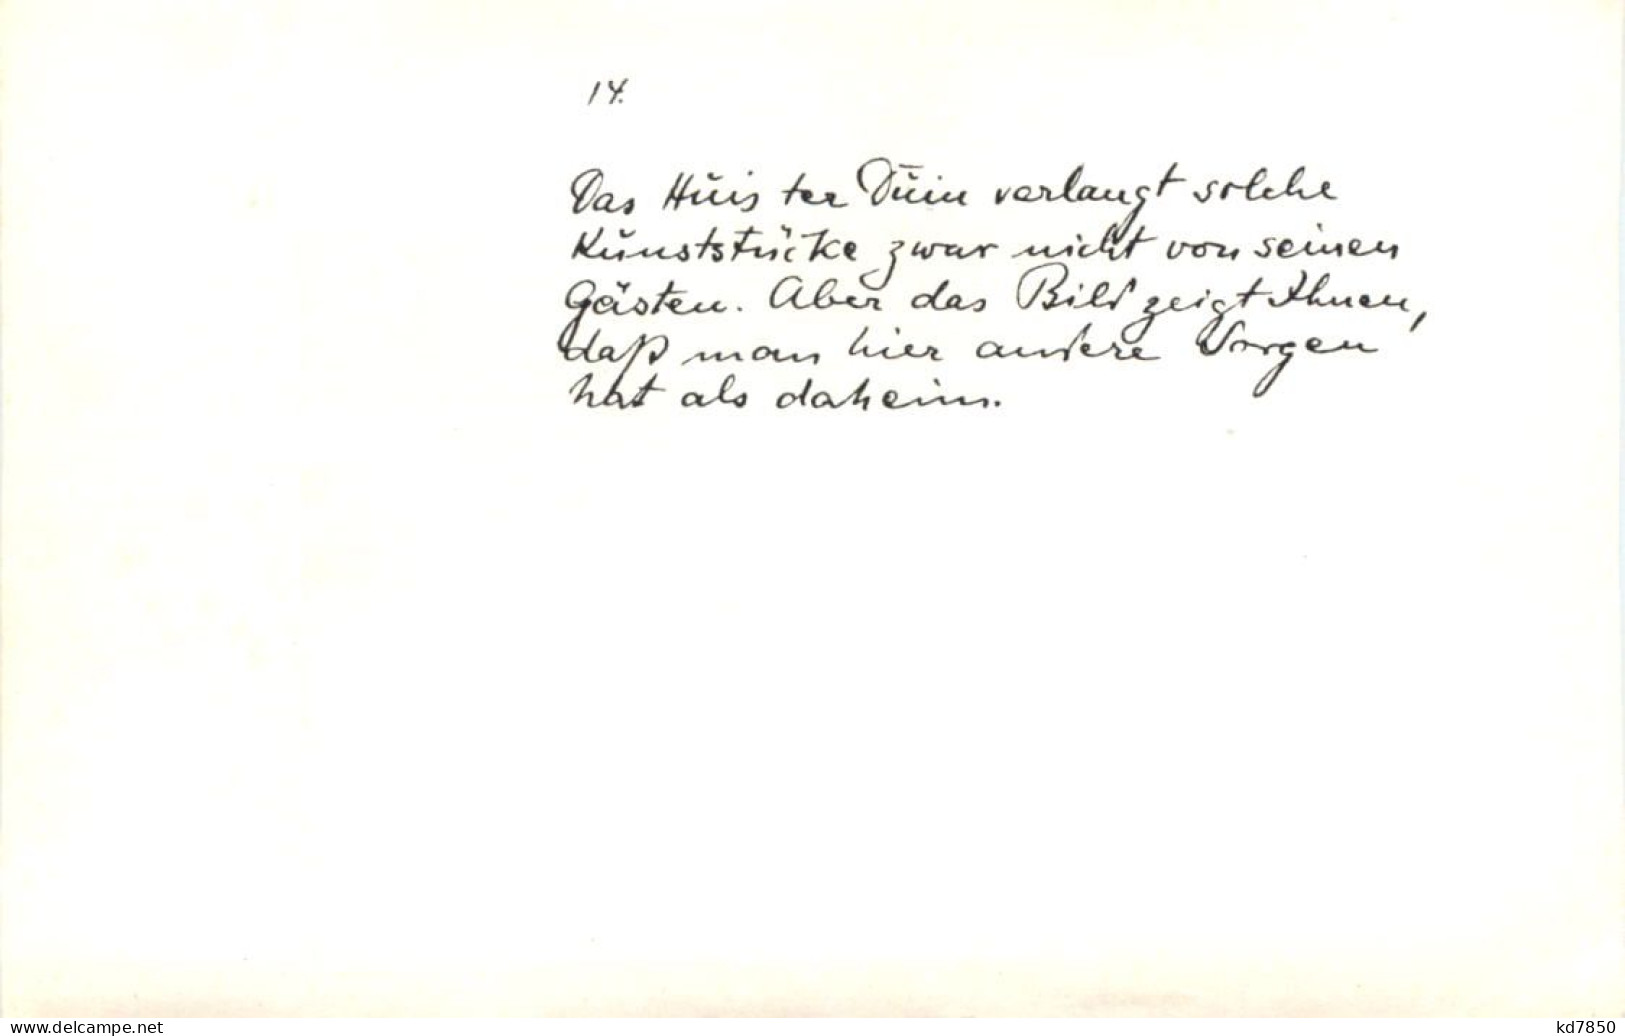 14.
Das Huis ter Duin verlangt solche
Kunststücke zwar nicht von seinen
Gästen. Aber das Bild zeigt Ihnen,
daß man hier andere Sorgen
hat als daheim.
www.delcampe.net
kd7850